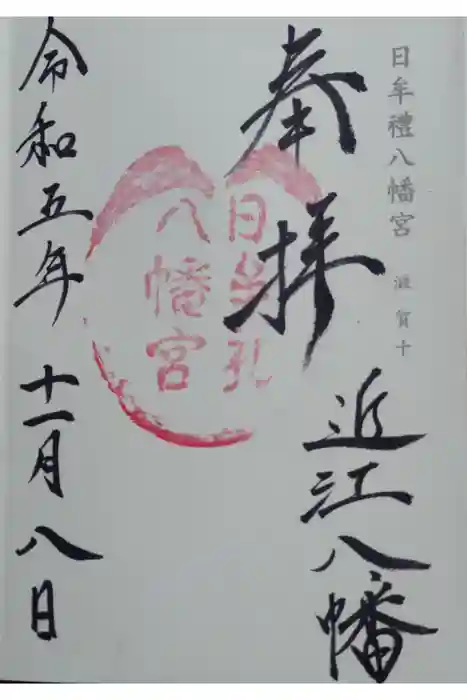 日牟禮八幡宮 滋賀十
奉拝
近江八幡
日牟礼
八幡宮
令和五年 十一月 八日